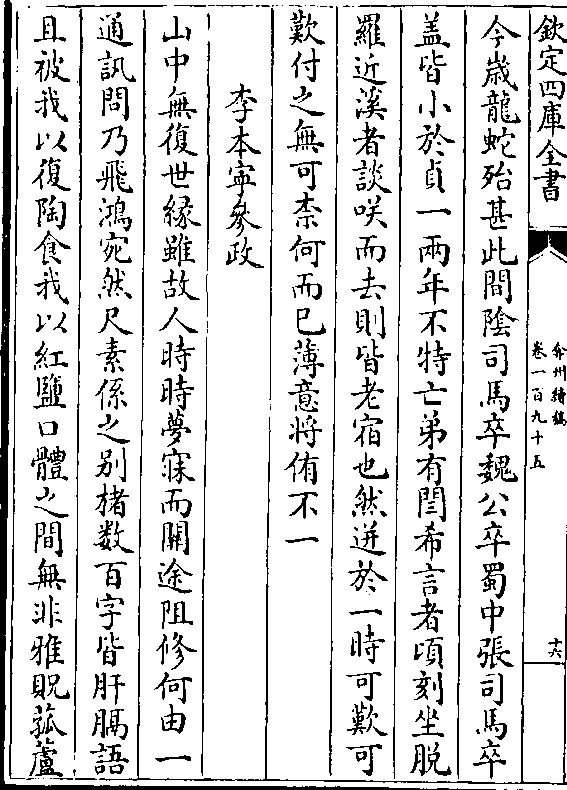 欽定四庫全書
弇州續稿
卷一百九十五
十六
今歲龍蛇殆甚此間陰司馬卒魏公卒蜀中張司馬卒
盖皆小於貞一兩年不特亡弟有閆希言者頃刻坐脫
羅近溪者談咲而去則皆老宿也然迸於一時可歎可
歎付之無可柰何而已薄意將侑不一
李本寧參政
山中無復世緣雖故人時時夢寐而關途阻修何由一
通訊問乃飛鴻宛然尺素係之别楮数百字皆肝膈語
且被我以復陶食我以紅鹽口體之間無非雅貺菰蘆